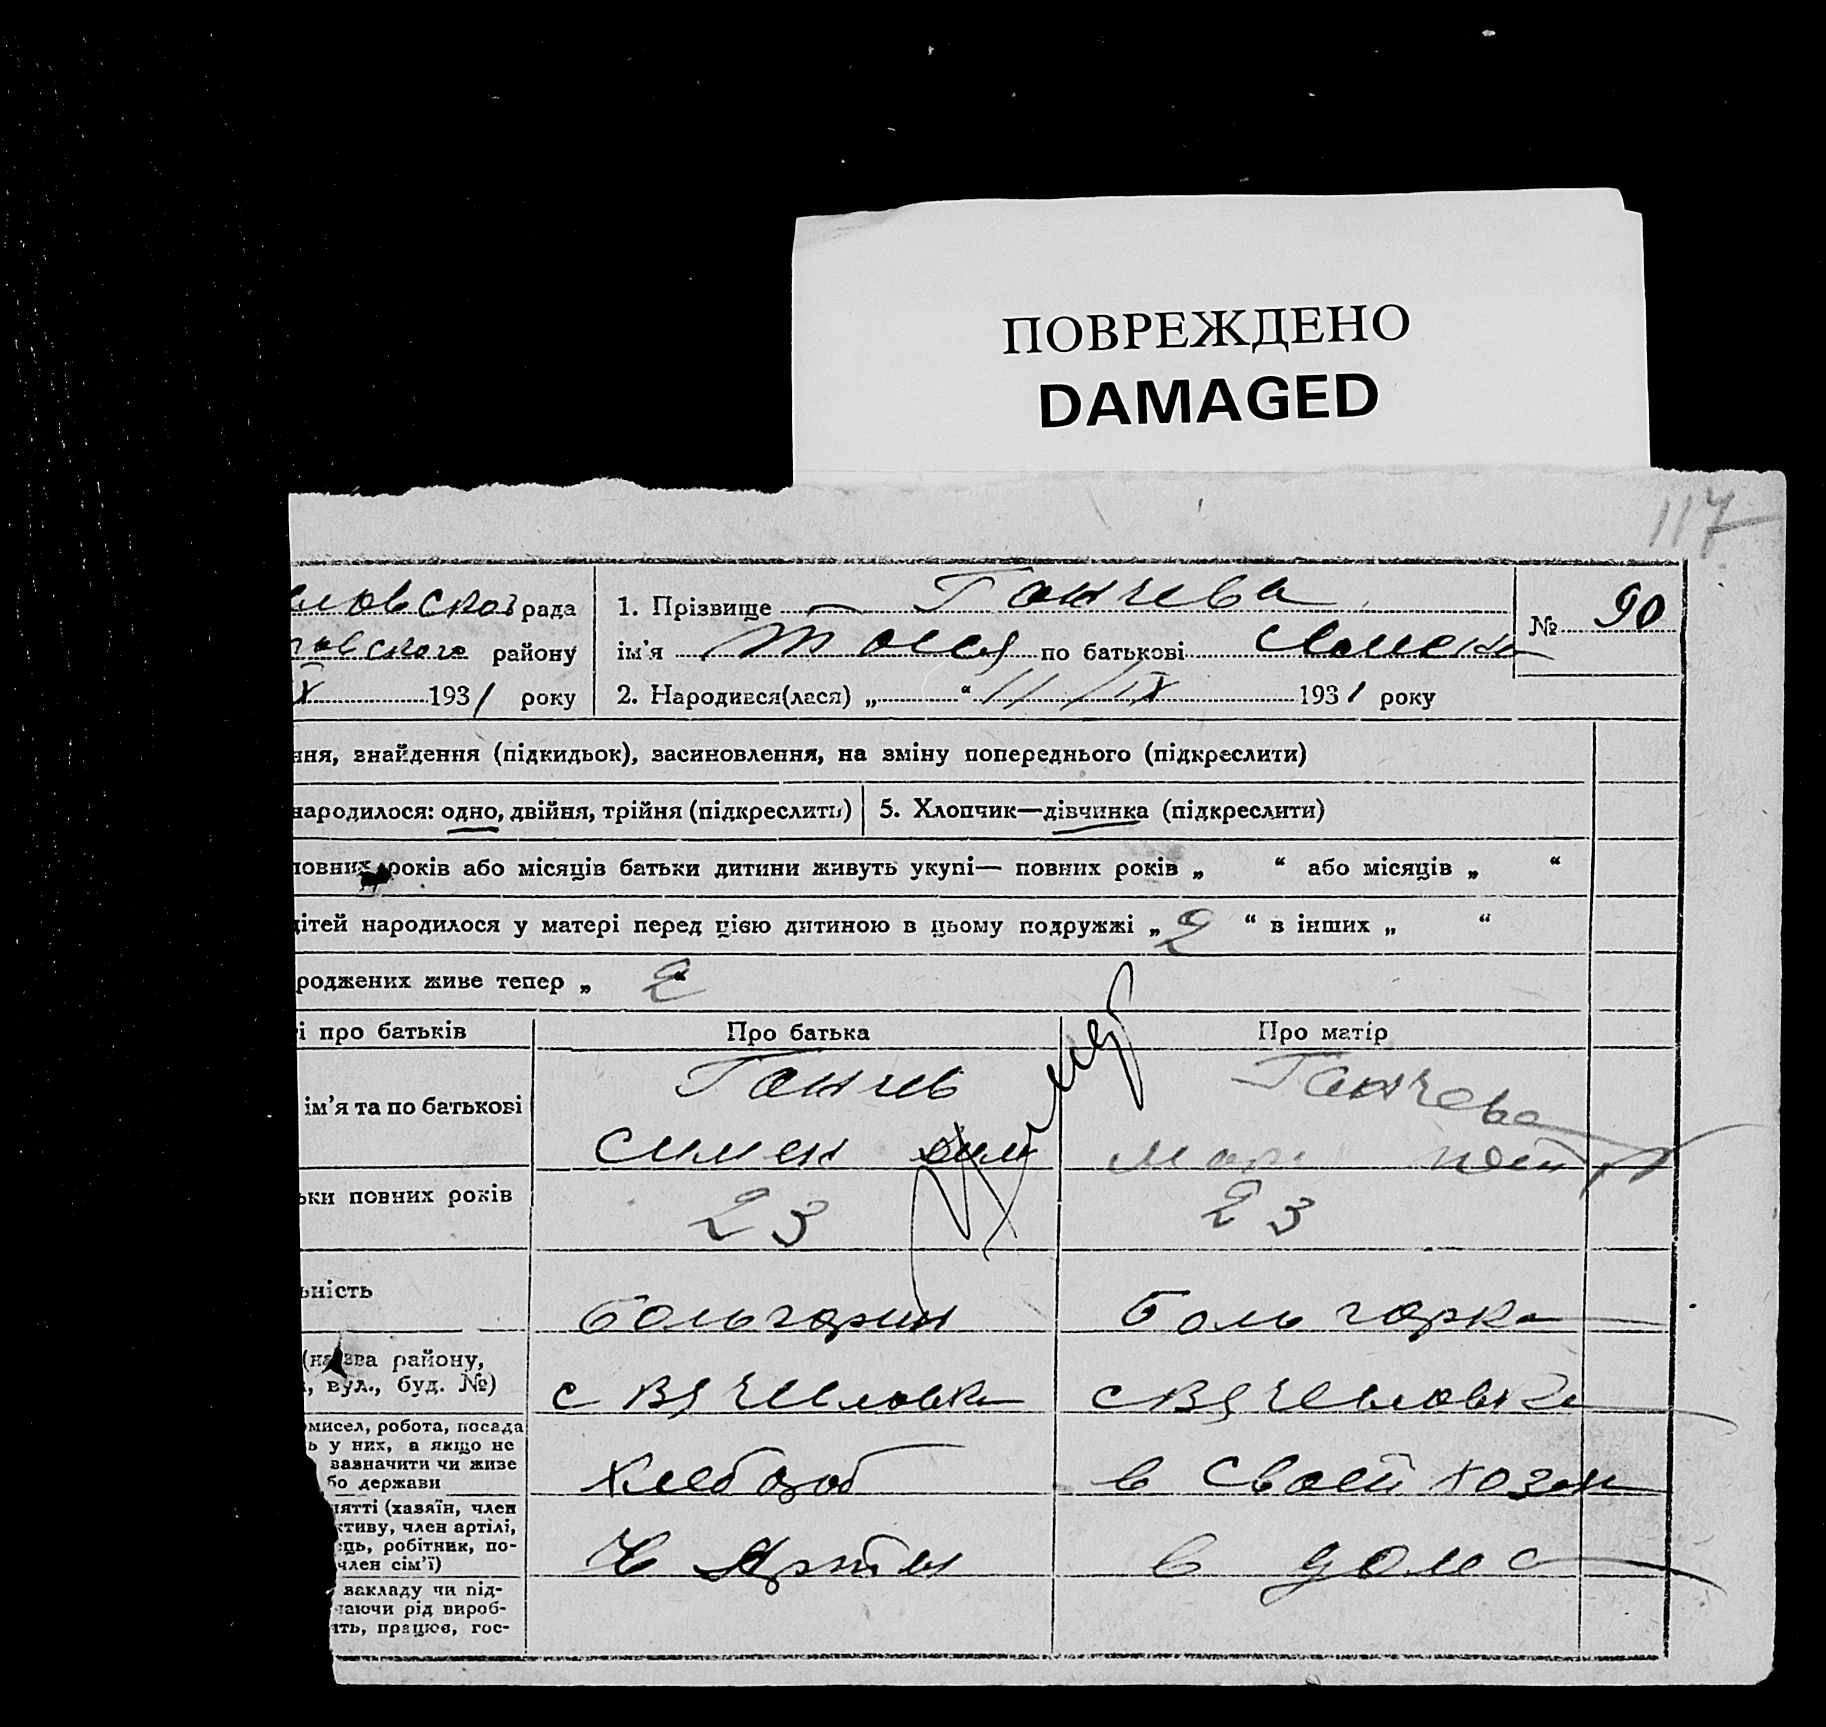 ПОВРЕЖДЕНО
DAMAGED
117
рада
1. Прізвище Ганчева
№ 90
району
ім'я Тося по батькові
X 1931 року
2. Народився(лася) „ “ 11/IX 1931 року
ння, знайдення (підкидьок), засиновлення, на зміну попереднього (підкреслити)
народилося: одно, двійня, трійня (підкреслить)
5. Хлопчик—дівчинка (підкреслити)
повних років або місяців батьки дитини живуть укупі— повних років „ “ або місяців „ “
дітей народилося у матері перед цією дитиною в цьому подружжі „ 2 “ в інших „ “
роджених живе тепер „ 2 “
і про батьків
Про батька
Про матір
ім'я та по батькові
Ганчев
Ганчева
Симен
ьки повних років
23
23
ьність
болгарин
болгарка
(назва району,
, вул., буд. №)
с Вячеловка
с Вячеловка
мисел, робота, посада
ь у них, а якщо не
вазначити чи живе
бо держави
хлебороб
в своей хозяй
нятті (хазяїн, член
ктиву, член артілі,
ець, робітник, по-
член сім'ї)
Ч Артели
в доме
закладу чи під-
чаючи рід вироб-
ять, працює, гос-